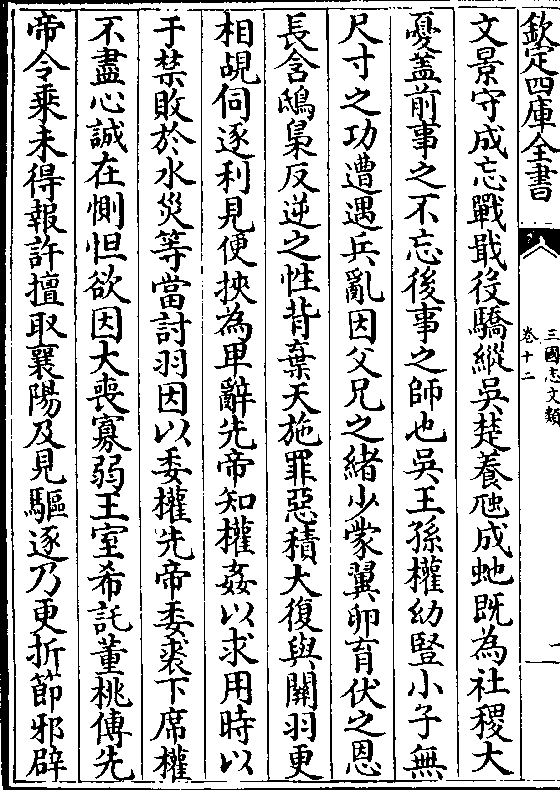 欽定四庫全書
三國志文類
卷十二
文景守成忘戰戢役驕縱吳楚養虺成虵既為社稷大
憂蓋前事之不忘後事之師也吳王孫權幼豎小子無
尺寸之功遭遇兵亂因父兄之緒少蒙翼卵育伏之恩
長含鴟梟反逆之性背棄天施罪惡積大復與關羽更
相覘伺逐利見便挾為卑辭先帝知權姦以求用時以
于禁敗於水災等當討羽因以委權先帝委裘下席權
不盡心誠在惻怛欲因大喪寡弱王室希託董桃傳先
帝令乘未得報許擅取襄陽及見驅逐乃更折節邪辟